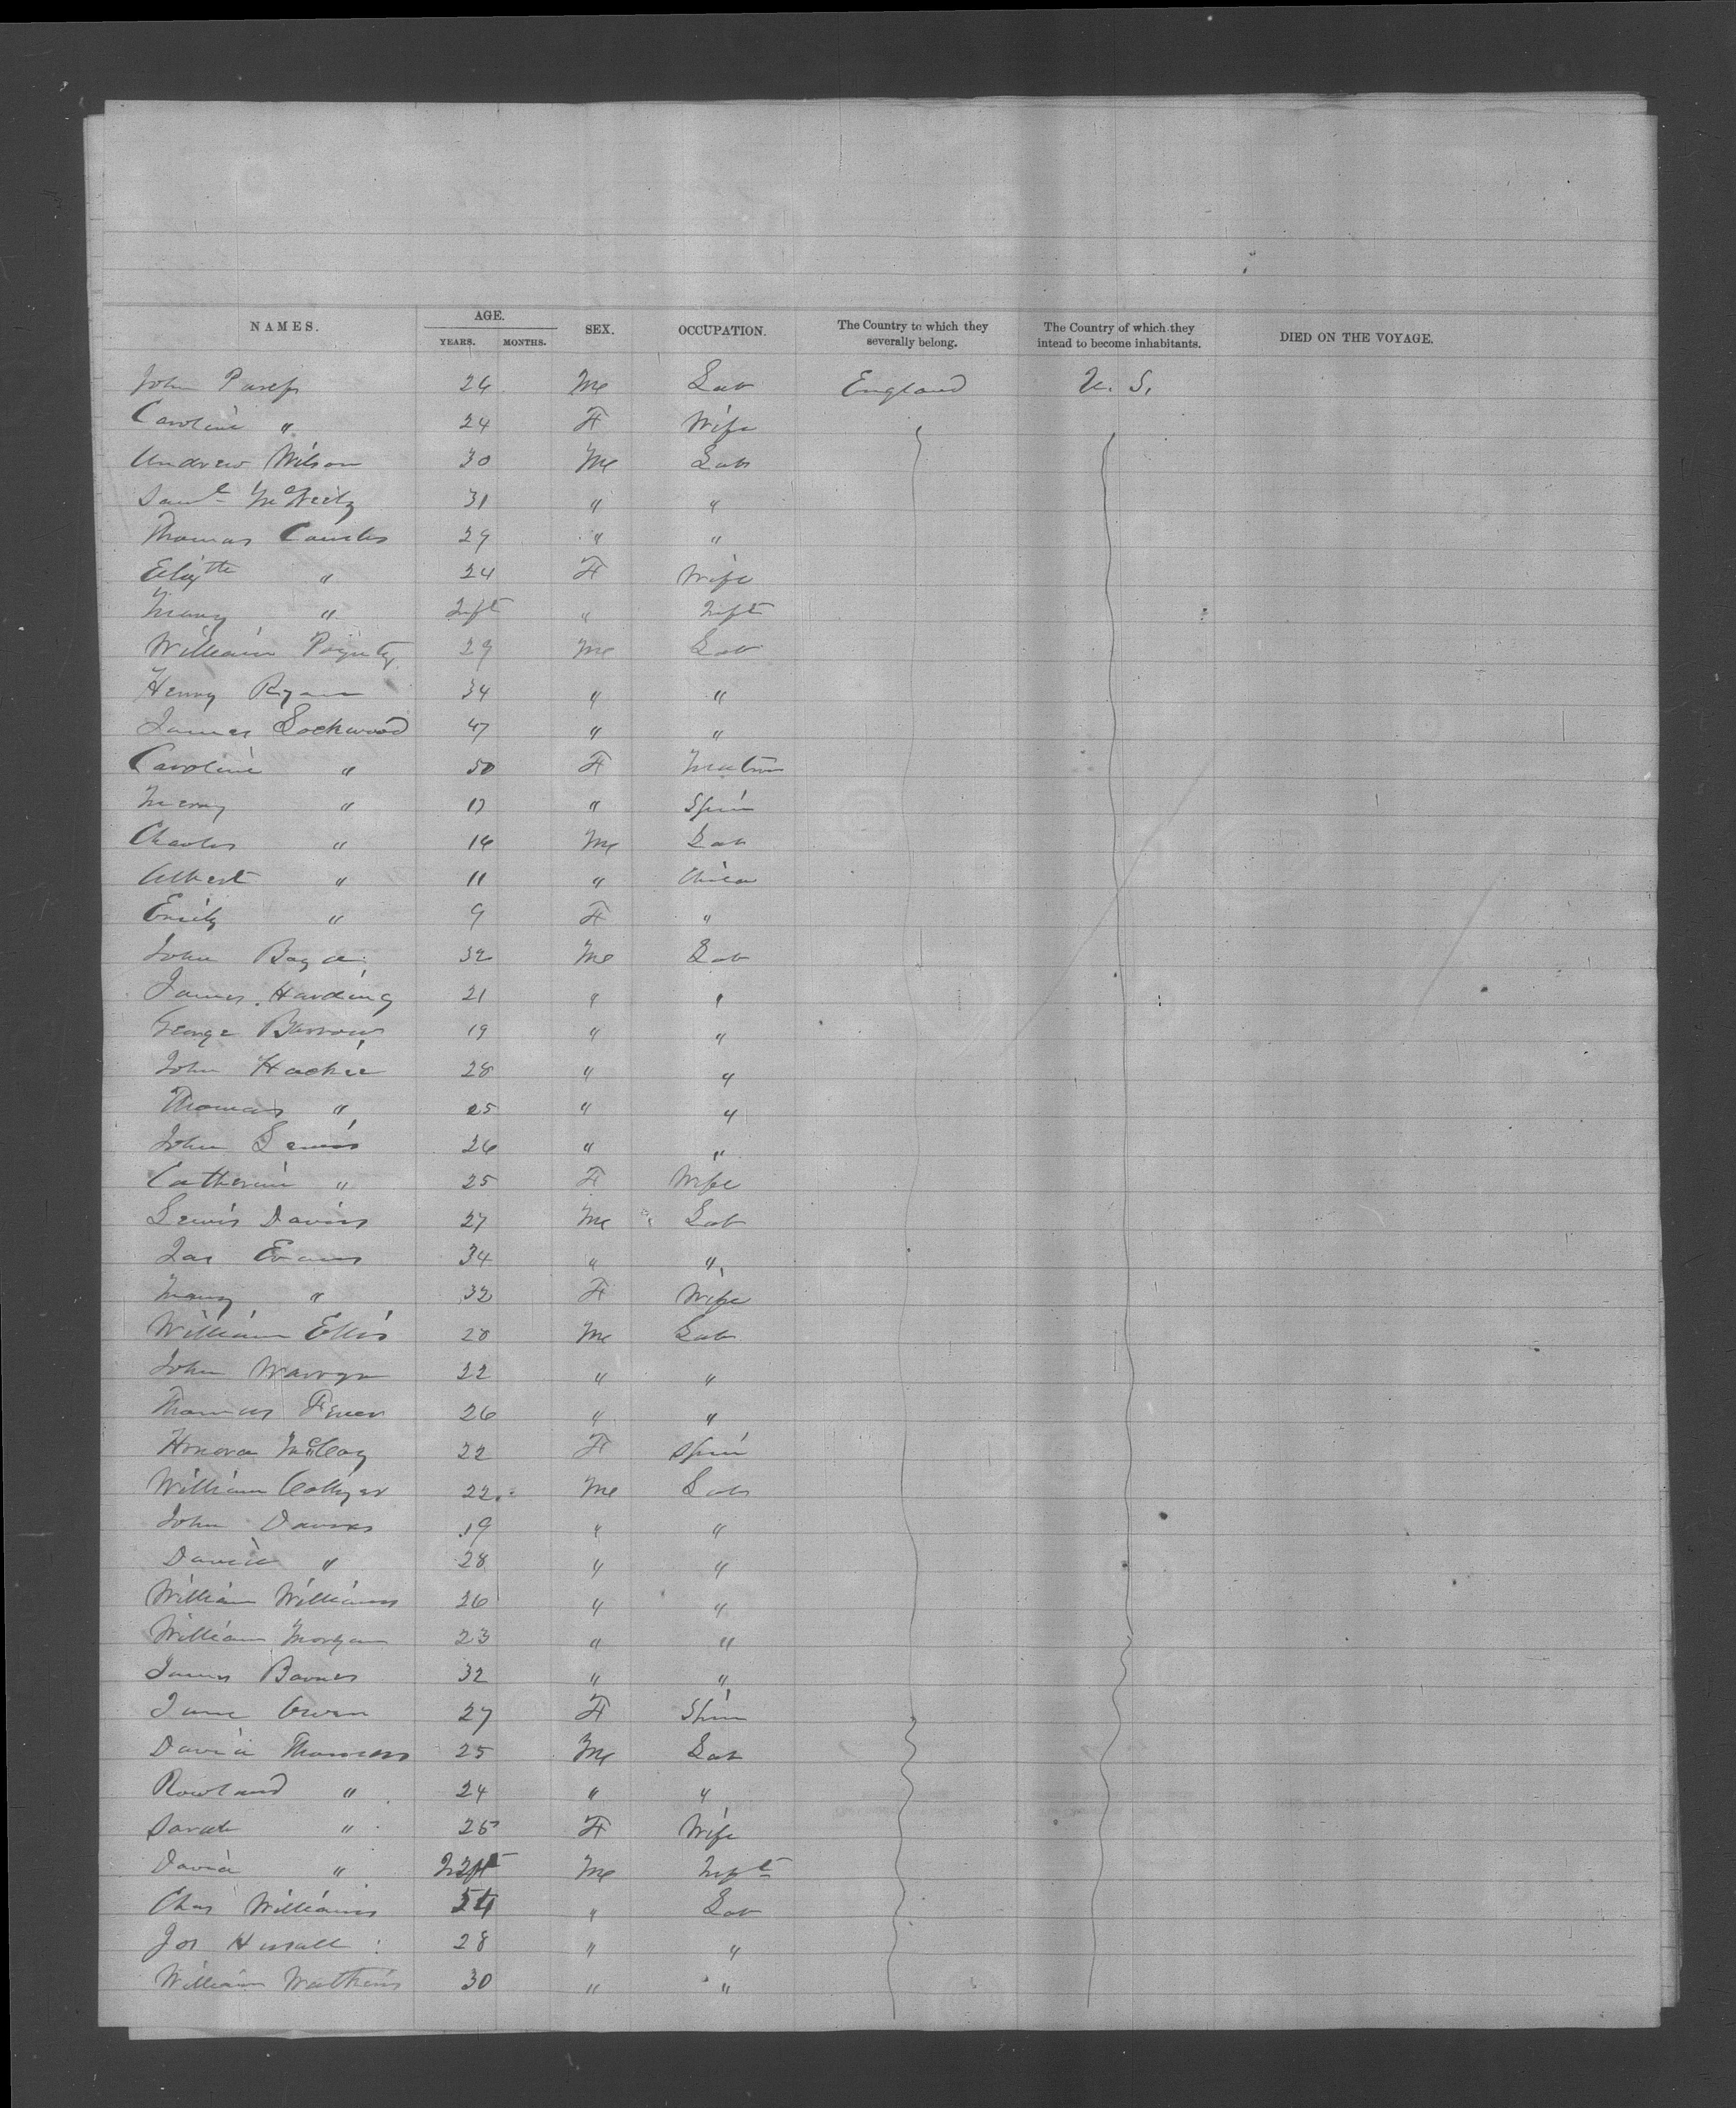 NAMES. AGE. YEARS. MONTHS. SEX. OCCUPATION. The Country to which they severally belong. The Country of which they intend to become inhabitants. DIED ON THE VOYAGE.
John 26 Me Lab England U. S.
Caroline " 24 F Wife
Andrew Wilson 30 Me Lab
Saml 31 " "
Thomas 29 " "
Elizth " 24 F Wife
Mary " Inft " Inft
William 29 Me Lab
Henry Ryan 34 " "
James Lockwood 47 " "
Caroline " 50 F Matron
Mary " 17 " Spin
Charles " 14 Me Lab
Albert " 11 " Child
Emily " 9 F "
John 32 Me Lab
James Harding 21 " "
George Barrows 19 " "
John 28 " "
Thomas " 25 " "
John Lewis 26 " "
Catherine " 25 F Wife
Lewis Davies 27 Me Lab
Jas Evans 34 " "
Mary " 32 F Wife
William Ellis 28 Me Lab
John 22 " "
Thomas 26 " "
Honora McCoy 22 F Spin
William Collyer 22 Me Lab
John Davies 19 " "
David " 28 " "
William Williams 26 " "
William Morgan 23 " "
James Barnes 32 " "
Jane Owen 27 F Spin
David Thomas 25 Me Lab
Rowland " 24 " "
Sarah " 25 F Wife
David " Inft Me Inft
Chas Williams 54 " Lab
Jos 28 " "
William Watkins 30 " "